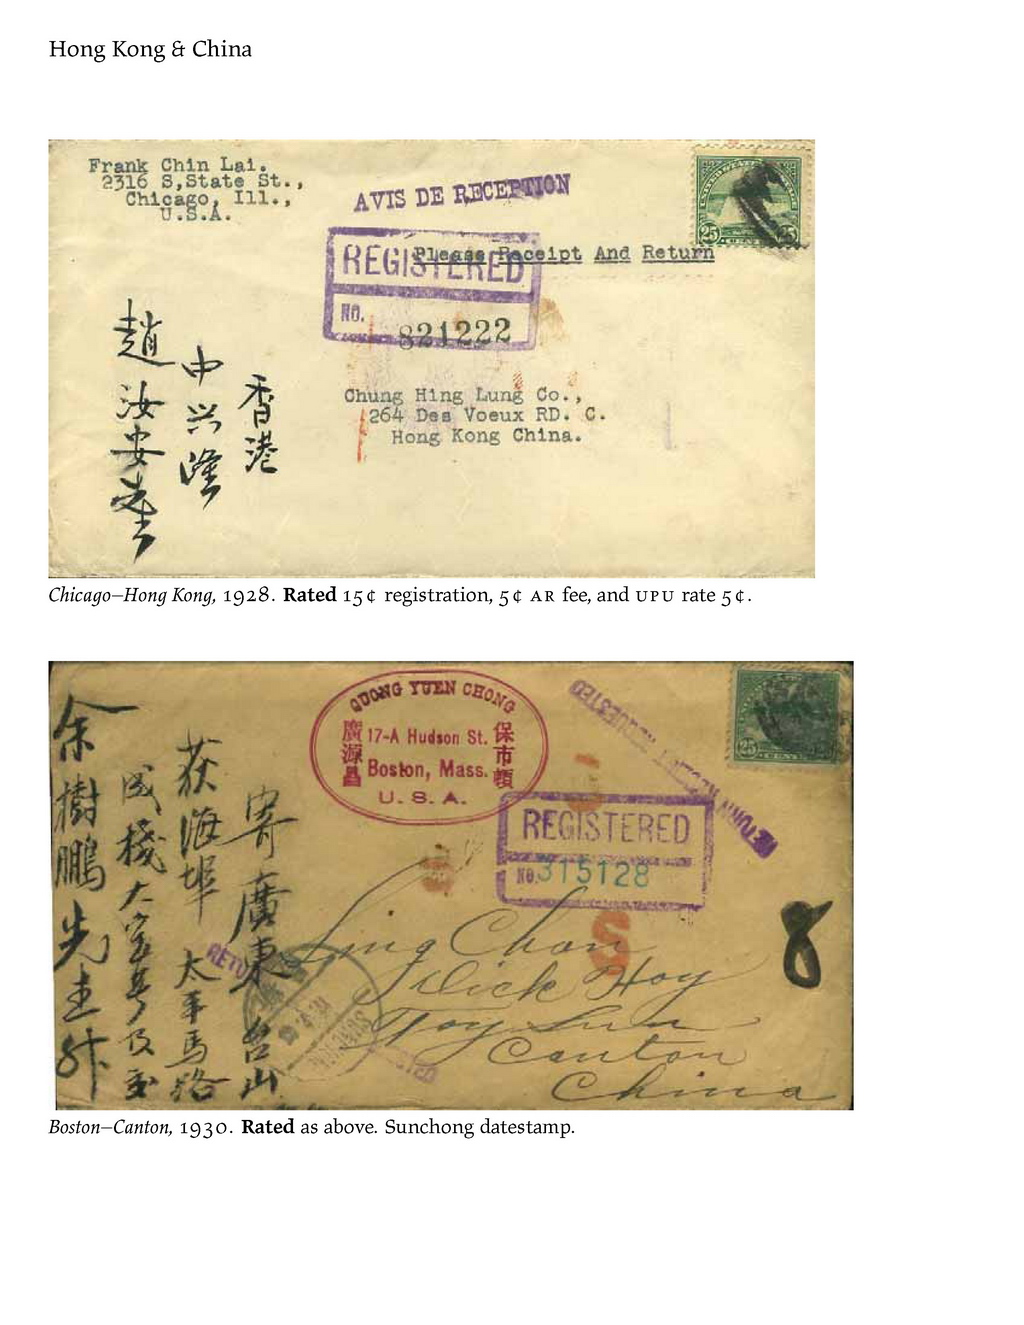 Hong Kong & China
Frank Chin Lai.
2316 S,State St.,
Chicago, Ill.,
U.S.A.
AVIS DE RECEPTION
25 25
CENTS
REGISTERED
Please Receipt And Return
NO. 821222
Chung Hing Lung Co.,
264 Des Voeux RD. C.
Hong Kong China.
香港
中兴隆
趙汝安先生
Chicago–Hong Kong, 1928. Rated 15¢ registration, 5¢ AR fee, and UPU rate 5¢.
QUONG YUEN CHONG
廣源昌
17-A Hudson St.
Boston, Mass.
U. S. A.
保市頓
RETURN RECEIPT REQUESTED
25
REGISTERED
NO. 315128
8
S
Ling Chon
Dick Hoy
Toy Sun
Canton
China
寄廣東台山
荻海埠太平馬路
余樹鵬先生
Boston–Canton, 1930. Rated as above. Sunchong datestamp.